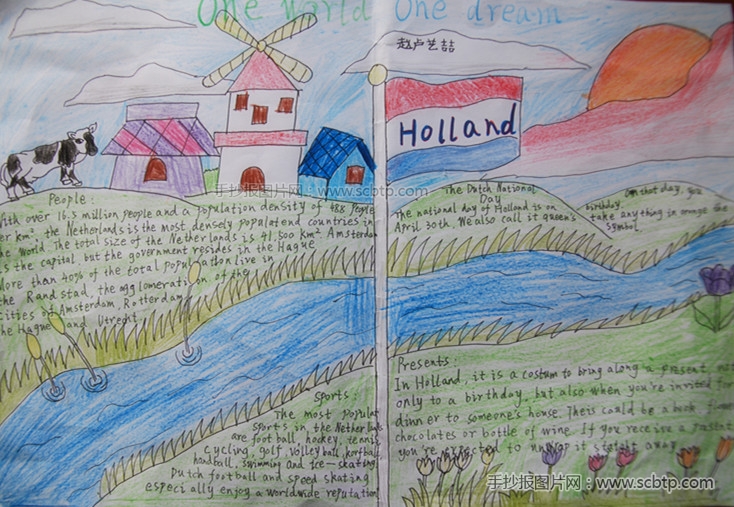 One world One dream
赵卢艺喆
Holland
手抄报图片网:www.scbtp.com
People:
With over 16.3 million people and a population density of 488 people
per km², the Netherlands is the most densely populatend countries in
the world. The total size of the Netherlands is 41,500 km². Amsterdam
is the capital, but the government resides in the Hague
More than 40% of the total population live in
the Randstad, the agglomeration of the
cities of Amsterdam, Rotterdam
the Hague and Utrect
The Dutch National
Day
The national day of Holland is on
April 30th. We also call it queen's
birthday. On that day, you
take anything in orange the
symbol
Sports:
The most popular
sports in the Netherlands
are football, hockey, tennis
cycling, golf, volleyball, korfball,
handball, swimming and ice-skating.
Dutch football and speed skating
especially enjoy a worldwide reputation
Presents:
In Holland, it is a costum to bring along a present not
only to a birthday, but also when you're invited for
dinner to someone's house. Theis could be a book,
chocolates or bottle of wine. If you receive a present
you're expected to unwrap it
away
手抄报图片网:www.scbtp.com